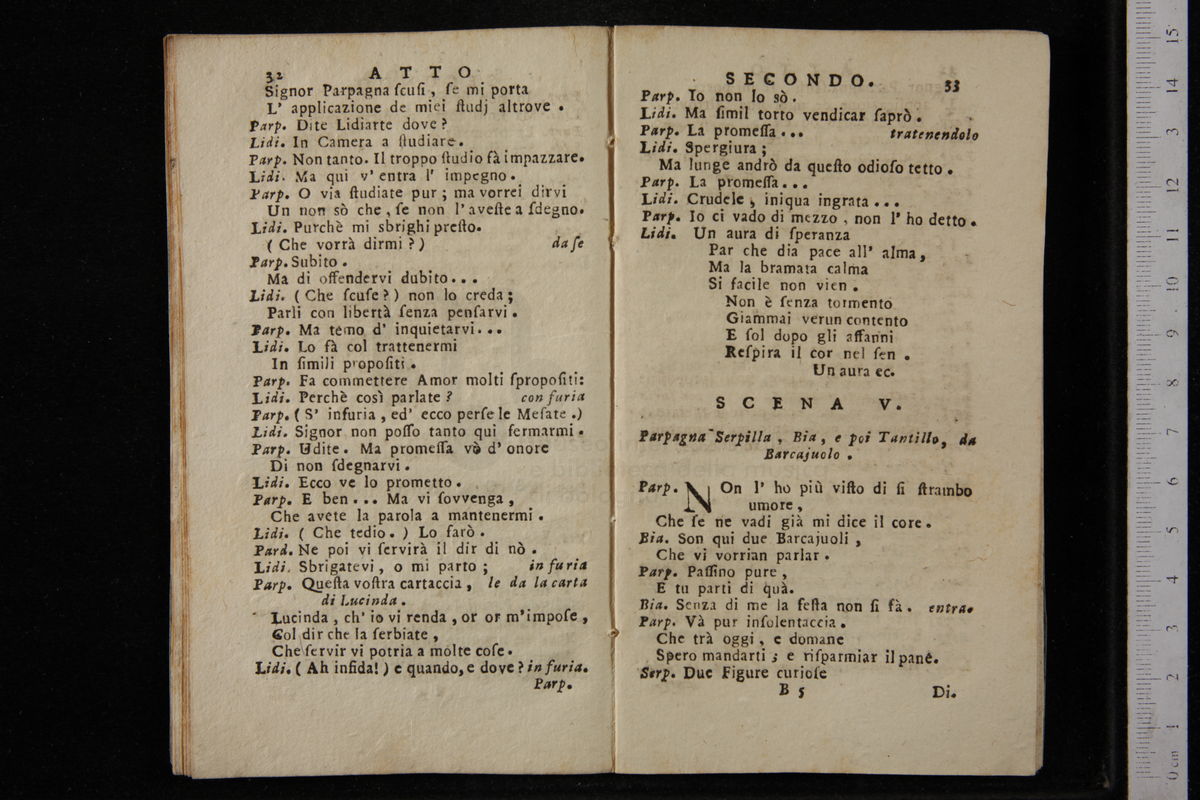 32 ATTO
Signor Parpagna ſcuſi, ſe mi porta
L' applicazione de miei ſtudj altrove.
Parp. Dite Lidiarte dove?
Lidi. In Camera a ſtudiare.
Parp. Non tanto. Il troppo ſtudio fà impazzare.
Lidi. Ma qui v' entra l' impegno.
Parp. O via ſtudiate pur; ma vorrei dirvi
Un non sò che, ſe non l'aveſte a ſdegno.
Lidi. Purchè mi sbrighi preſto.
(Che vorrà dirmi?) da ſe
Parp. Subito.
Ma di offendervi dubito...
Lidi. (Che ſcuſe?) non lo creda;
Parli con libertà ſenza penſarvi.
Parp. Ma temo d' inquietarvi...
Lidi. Lo fà col trattenermi
In ſimili propoſiti.
Parp. Fa commettere Amor molti ſpropoſiti:
Lidi. Perchè così parlate? con furia
Parp. (S' infuria, ed' ecco perſe le Meſate.)
Lidi. Signor non poſſo tanto qui fermarmi.
Parp. Udite. Ma promeſſa vò d' onore
Di non ſdegnarvi.
Lidi. Ecco ve lo prometto.
Parp. E ben... Ma vi ſovvenga,
Che avete la parola a mantenermi.
Lidi. (Che tedio.) Lo farò.
Pard. Ne poi vi ſervirà il dir di nò.
Lidi. Sbrigatevi, o mi parto; in furia
Parp. Queſta voſtra cartaccia, le da la carta
di Lucinda.
Lucinda, ch' io vi renda, or or m'impoſe,
Col dir che la ſerbiate,
Che ſervir vi potria a molte coſe.
Lidi. (Ah infida!) e quando, e dove? in furia.
Parp.
SECONDO. 33
Parp. Io non lo sò.
Lidi. Ma ſimil torto vendicar ſaprò.
Parp. La promeſſa... tratenendolo
Lidi. Spergiura;
Ma lunge andrò da queſto odioſo tetto.
Parp. La promeſſa...
Lidi. Crudele, iniqua ingrata...
Parp. Io ci vado di mezzo, non l' ho detto.
Lidi. Un aura di ſperanza
Par che dia pace all' alma,
Ma la bramata calma
Si facile non vien.
Non è ſenza tormento
Giammai verun contento
E ſol dopo gli affanni
Reſpira il cor nel ſen.
Un aura ec.
SCENA V.
Parpagna Serpilla, Bia, e poi Tantillo, da
Barcajuolo.
Parp. NOn l' ho più viſto di ſi ſtrambo
umore,
Che ſe ne vadi già mi dice il core.
Bia. Son qui due Barcajuoli,
Che vi vorrian parlar.
Parp. Paſſino pure,
E tu parti di quà.
Bia. Senza di me la feſta non ſi fà. entra.
Parp. Và pur inſolentaccia.
Che trà oggi, e domane
Spero mandarti; e riſparmiar il pane.
Serp. Due Figure curioſe
B 5 Di.